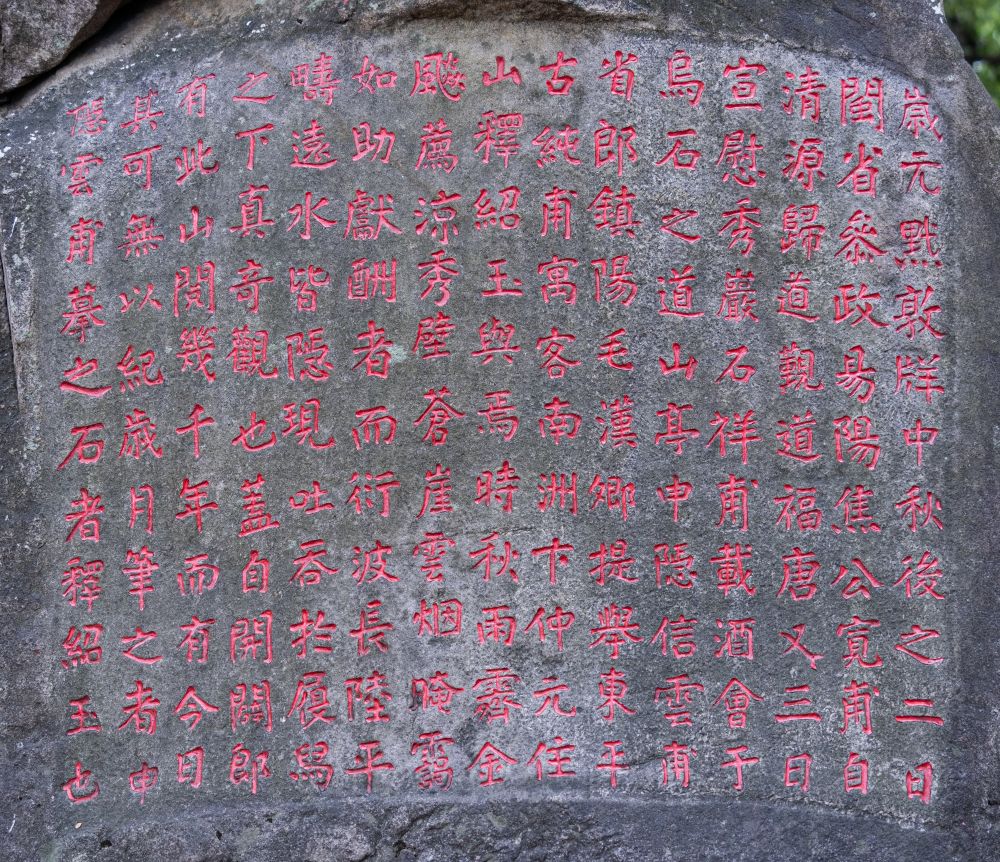 歲元黓敦牂中秋後之二日
閩省參政昜陽焦公寬甫自
清源歸道觀道福唐又三日
宣慰秀巖石祥甫載酒會于
烏石之道山亭申隐信雲甫
省郎鎮陽毛漢卿提舉東平
古純甫寓客南洲卞仲元住
山釋紹玉與焉時秋雨霽金
飈薦涼秀壁蒼崖雲烟晻靄
如助獻酬者而衍波長陸平
疇遠水皆隠現吐吞於履舄
之下真奇觀也蓋自開闢郎
有此山閱幾千年而有今日
其可無以紀歲月筆之者申
隠雲甫摹之石者釋紹玉也